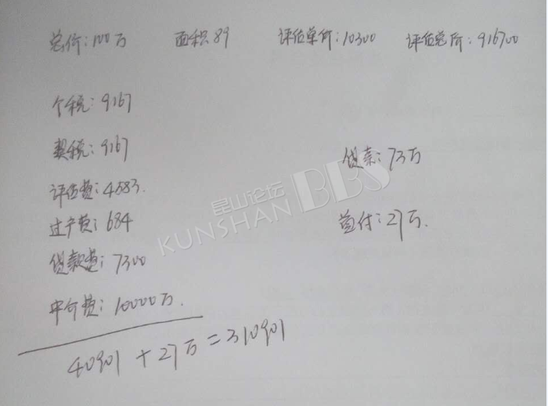 总价:100万 面积89 评估单价:10300 评估总价:916700
个税:9167
契税:9167
贷款:73万
评估费:4583.
首付:27万.
过户费:684
贷款费:7300
中介费:10000万.
40901+27万=310901
昆山论坛
KUNSHAN BBS